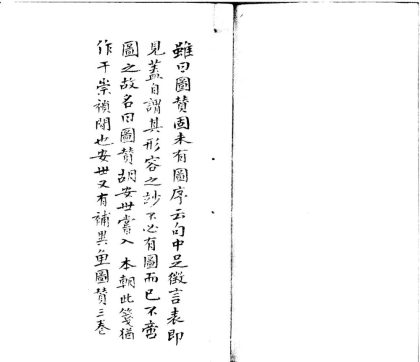 雖曰圖贊固未有圖序云句中足徵言表即
見蓋自謂其形容之妙不必有圖而已不啻
圖之故名曰圖贊胡安世嘗入本朝此箋猶
作于崇禎間也安世又有補異魚圖贊三卷